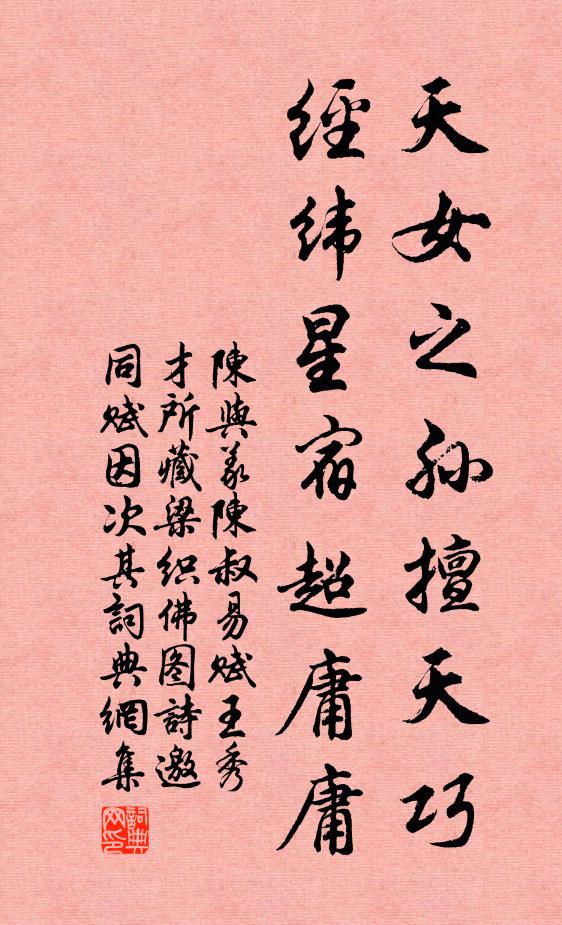 天女之孙擅天巧
經緯星宿超庸庸
陳與義陳叔易赋王秀
才所藏梁织佛图詩邀
同赋因次其詞典網集
詞典
网印